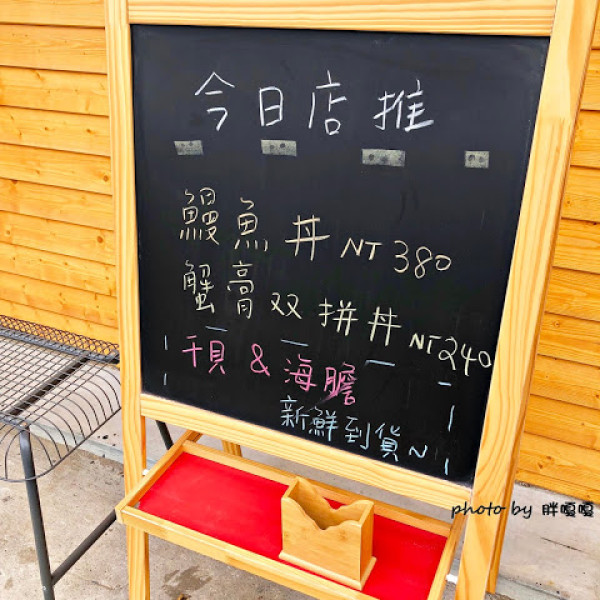 今日店推
鰻魚丼 NT 380
蟹膏双拼丼 NT 240
干貝 & 海膽
新鮮到貨~
photo by 胖嘎嘎